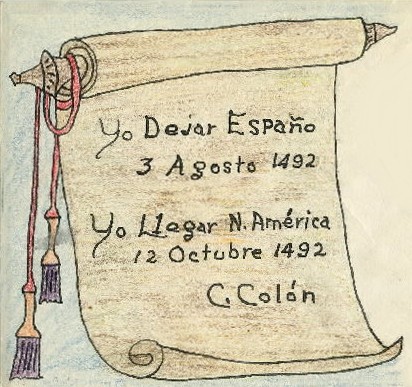 Yo Dejar Españo
3 Agosto 1492
Yo Llegar N. América
12 Octubre 1492
C. Colón